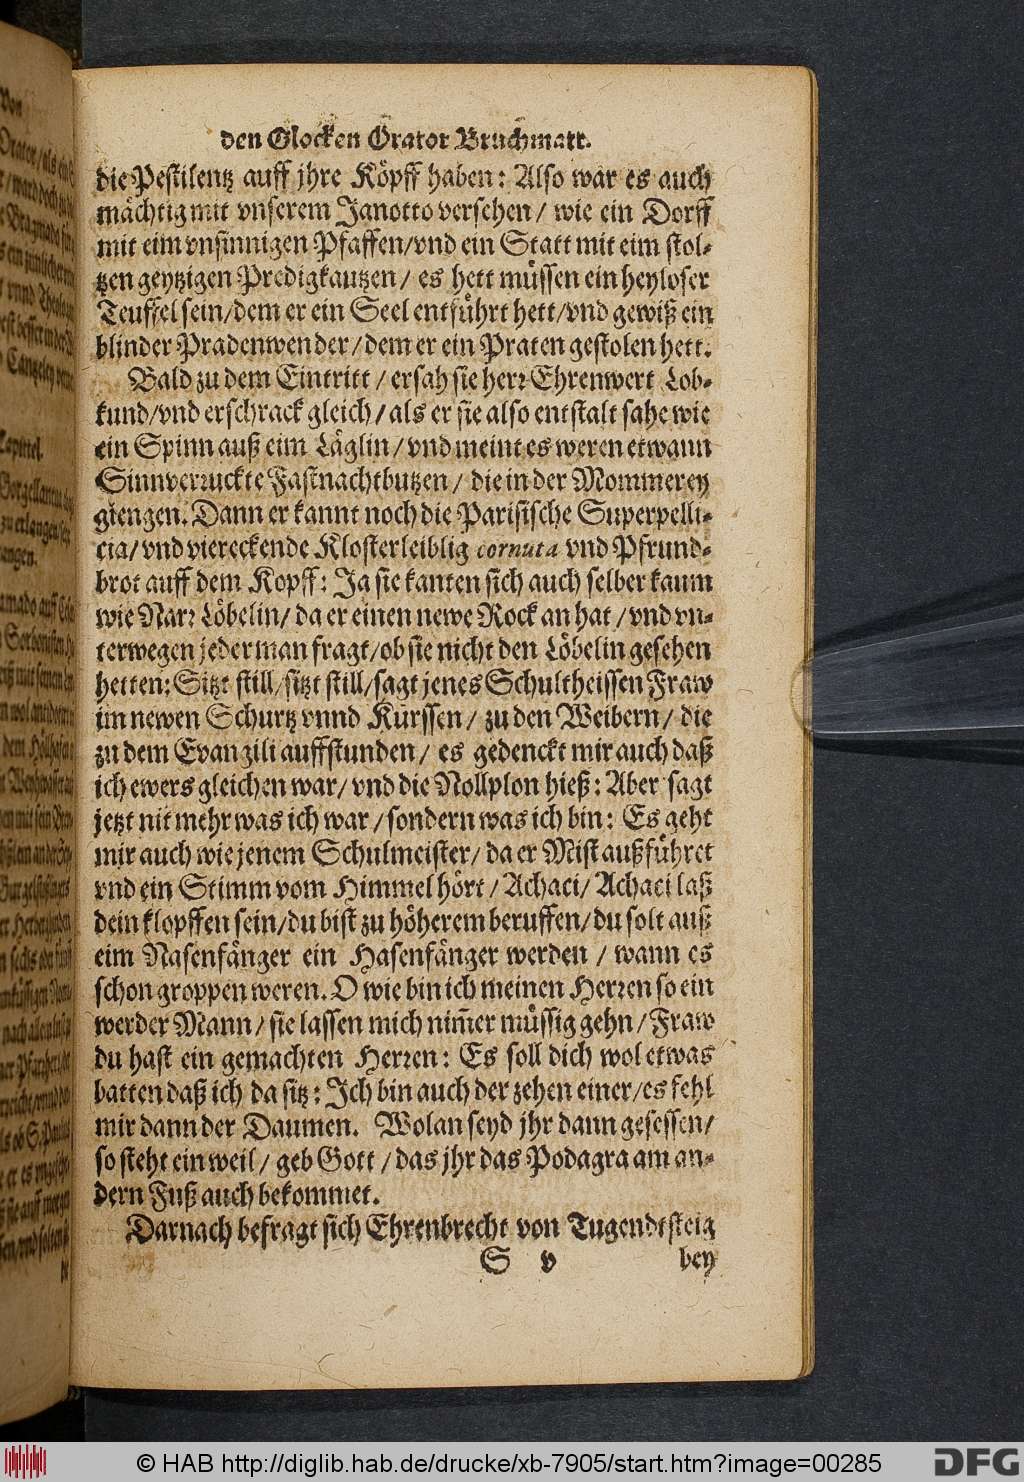 den Glocken Orator Bruchmatt.
die Pestilentz auff jhre Köpff haben: Also war es auch
mächtig mit vnserem Janotto versehen / wie ein Dorff
mit eim vnsinnigen Pfaffen/vnd ein Statt mit eim stol-
tzen geytzigen Predigkautzen / es hett müssen ein heyloser
Teuffel sein/dem er ein Seel entführt hett/vnd gewiß ein
blinder Pradenwender/dem er ein Praten gestolen hett.
Bald zu dem Eintritt / ersah sie herꝛ Ehrenwert Lob-
kund/vnd erschrack gleich/als er sie also entstalt sahe wie
ein Spinn auß eim Läglin/vnd meint es weren etwann
Sinnverꝛuckte Fastnachtbutzen / die in der Mommerey
giengen. Dann er kannt noch die Parisische Superpelli-
cia/vnd viereckende Klosterleiblig cornuta vnd Pfrund-
brot auff dem Kopff: Ja sie kanten sich auch selber kaum
wie Narꝛ Löbelin/ da er einen newe Rock an hat / vnd vn-
terwegen jederman fragt/ob sie nicht den Löbelin gesehen
hetten: Sitzt still/sitzt still/sagt jenes Schultheissen Fraw
im newen Schurtz vnnd Kürssen / zu den Weibern / die
zu dem Evangili auffstunden / es gedenckt mir auch daß
ich ewers gleichen war/ vnd die Nollplon hieß: Aber sagt
jetzt nit mehr was ich war / sondern was ich bin: Es geht
mir auch wie jenem Schulmeister / da er Mist außführet
vnd ein Stimm vom Himmel hört / Achaci/ Achaci laß
dein klopffen sein/du bist zu höherem beruffen/du solt auß
eim Nasenfänger ein Hasenfänger werden / wann es
schon groppen weren. O wie bin ich meinen Herꝛen so ein
werder Mann / sie lassen mich nim̃er müssig gehn / Fraw
du hast ein gemachten Herꝛen: Es soll dich wol etwas
batten daß ich da sitz: Ich bin auch der zehen einer/es fehl
mir dann der Daumen. Wolan seyd jhr dann gesessen/
so steht ein weil / geb Gott / das jhr das Podagra am an-
dern Fuß auch bekommet.
Darnach befragt sich Ehrenbrecht von Tugendtsteig
S v bey
© HAB http://diglib.hab.de/drucke/xb-7905/start.htm?image=00285
DFG